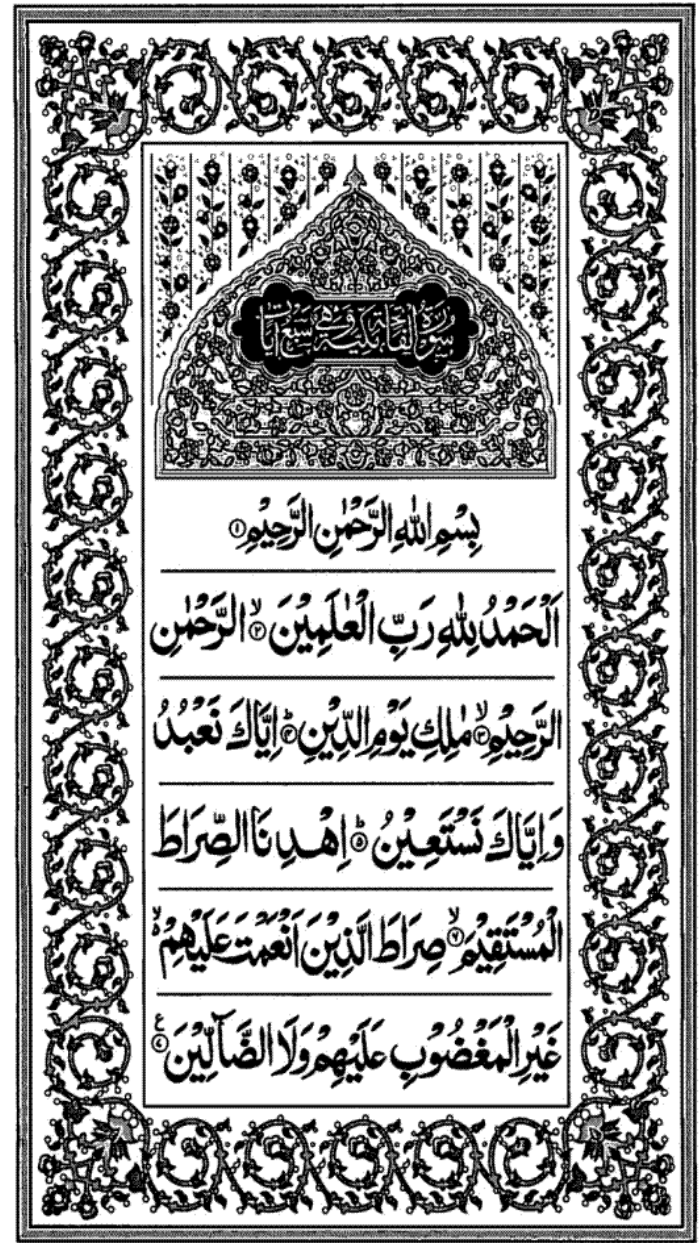 سورة الفاتحة مكية وهي سبع آيات
بِسْمِ اللّٰهِ الرَّحْمٰنِ الرَّحِيْمِ ۝١
اَلْحَمْدُ لِلّٰهِ رَبِّ الْعٰلَمِيْنَ ۙ۝٢ الرَّحْمٰنِ
الرَّحِيْمِ ۙ۝٣ مٰلِكِ يَوْمِ الدِّيْنِ ؕ۝٤ اِيَّاكَ نَعْبُدُ
وَاِيَّاكَ نَسْتَعِيْنُ ؕ۝٥ اِهْدِنَا الصِّرَاطَ
الْمُسْتَقِيْمَ ۙ۝٦ صِرَاطَ الَّذِيْنَ اَنْعَمْتَ عَلَيْهِمْ ۙ
غَيْرِ الْمَغْضُوْبِ عَلَيْهِمْ وَلَا الضَّآلِّيْنَ ۝٧ ع